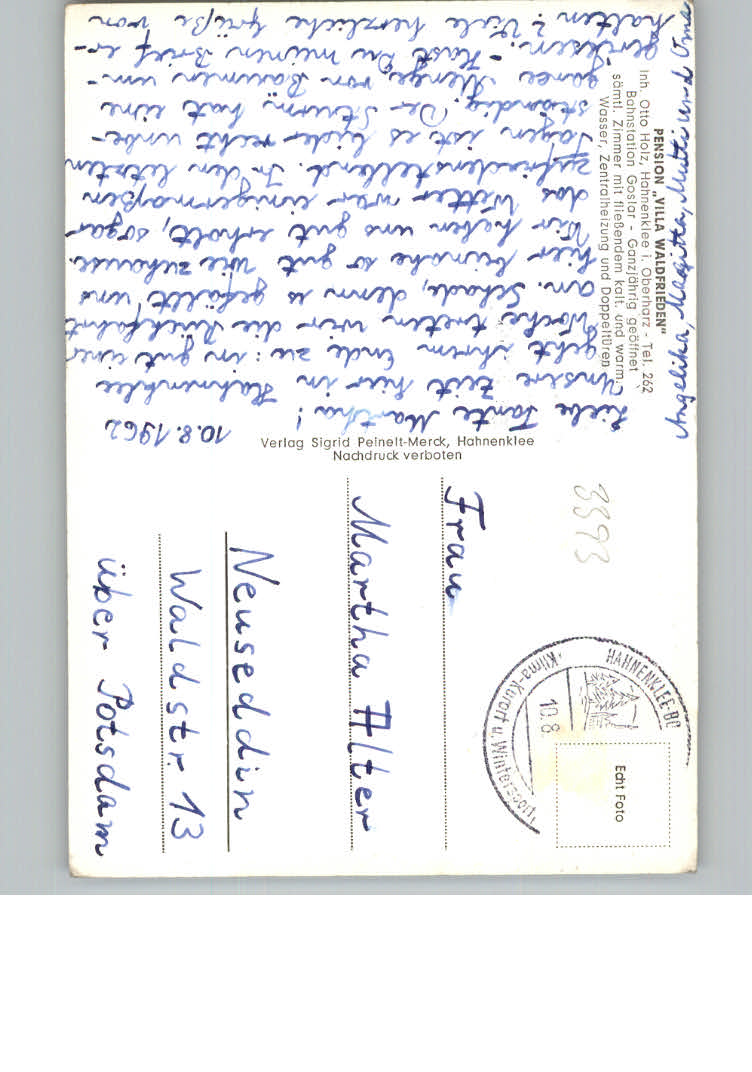 PENSION „VILLA WALDFRIEDEN"
Inh. Otto Holz, Hahnenklee i. Oberharz - Tel. 262
Bahnstation Goslar - Ganzjährig geöffnet
sämtl. Zimmer mit fließendem kalt. und warm.
Wasser, Zentralheizung und Doppeltüren
10.8.1962
Liebe Tante Martha!
Unsere Zeit hier in Hahnenklee
geht ihrem Ende zu: in gut einer
Woche treten wir die Rückfahrt
an. Schade, denn es gefällt uns
hier beinahe so gut wie zuhause.
Wir haben uns gut erholt, sogar
das Wetter war einigermaßen
zufriedenstellend. In den letzten
Tagen ist es leider recht unbe-
ständig. Der Sturm hat eine
ganze Menge von Bäumen um-
gerissen. - Hast Du meinen Brief er-
halten? Viele herzliche Grüße von
Angelika, Mutti und Oma
Verlag Sigrid Peinelt-Merck, Hahnenklee
Nachdruck verboten
3393
HAHNENKLEE-BO
10.8.
Klima-Kurort u. Wintersport
Echt Foto
Frau
Martha Alter
Neuseddin
Waldstr. 13
über Potsdam